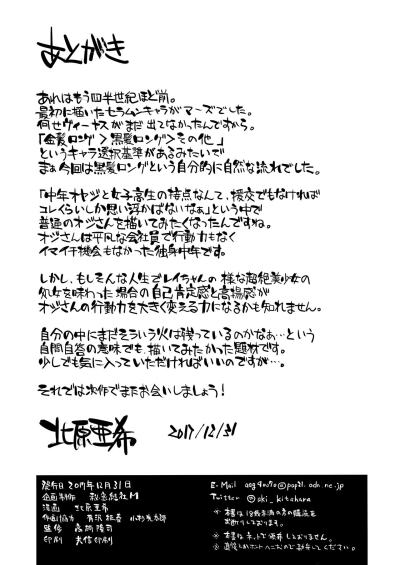 あとがき
あれはもう四半世紀ほど前。
最初に描いたセラムンキャラがマーズでした。
何せヴィーナスがまだ出てなかったんですから。
「金髪ロング>黒髪ロング>その他」
というキャラ選択基準があるみたいで
まぁ今回は黒髪ロングという自分的に自然な流れでした。
「中年オヤジと女子高生の接点なんて、援交でもなければ
コレくらいしか思い浮かばないなぁ」という中で
普通のオジさんを描いてみたくなったんですね。
オジさんは平凡な会社員で行動力もなく
イマイチ機会もなかった独身中年です。
しかし、もしそんな人生でレイちゃんの様な超絶美少女の
処女を味わった場合の自己肯定感と高揚感が
オジさんの行動力を大きく変える力になるかも知れません。
自分の中にまだそういう火は残っているのかなぁ…という
自問自答の意味でも、描いてみたかった題材です。
少しでも気に入っていただければいいのですが…。
それでは次作でまたお会いしましょう!
北原亜希 2017/12/31
発行日 2017年12月31日
企画制作 秘密結社M
漫画 北原亜希
監修 高橋
印刷
E-Mail
Twitter @aki_kitahara
※本書は18歳未満の方の購読を
お断りしております。